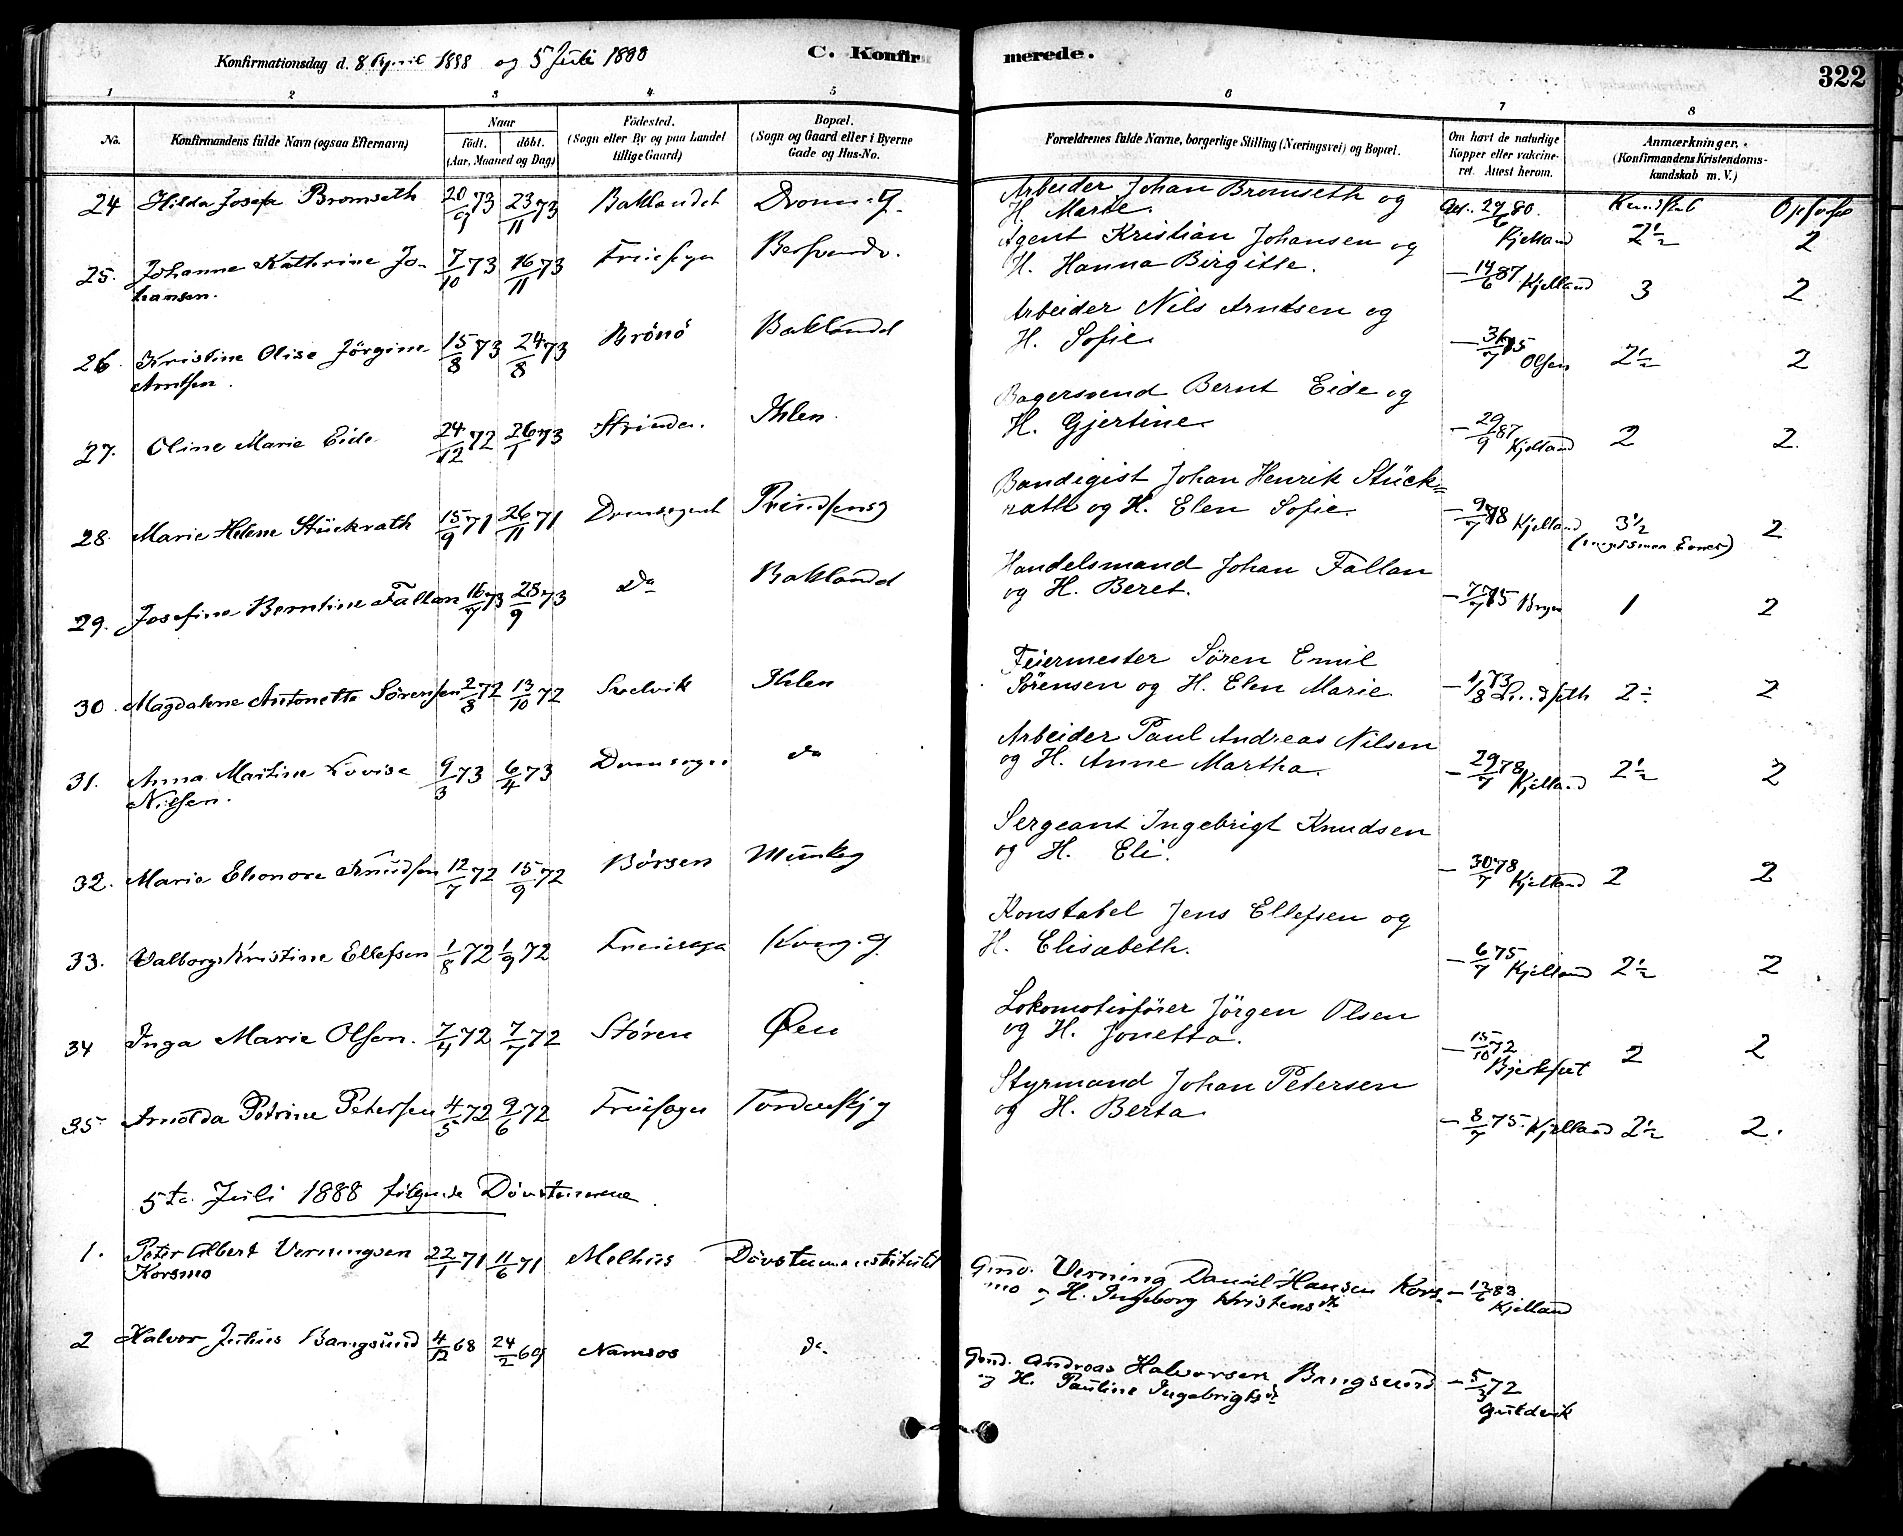 Konfirmationsdag d. 8 April 1888 og 5 Juli 1888
C. Konfirmerede.
322
1 2 3 4 5 6 7 8
No.
Konfirmandens fulde Navn (ogsaa Efternavn)
Naar
født. døbt.
(Aar, Maaned og Dag)
Fødested.
(Sogn eller By og paa Landet
tillige Gaard)
Bopæl.
(Sogn og Gaard eller i Byerne
Gade og Hus-No.
Forældrenes fulde Navne, borgerlige Stilling (Næringsvei) og Bopæl.
Om havt de naturlige
Kopper eller vakcine-
ret. Attest herom.
Anmærkninger.
(Konfirmandens Kristendoms-
kundskab m. V.)
24 Hilda Josefa Bromseth 20/9 73 23/11 73 Baklandet Dronn. g. Arbeider Johan Bromseth og
H. Marte. 29/6 80. Kjelland Kundskab 2½ Opførsel 2
25. Johanne Kathrine Jo-
hansen. 7/10 73 16/11 73 Fruesogn Agent Kristian Johansen og
H. Hanna Birgitte. – 14/6 87 Kjelland 3 2
26. Kristine Olise Jørgine
Arntsen. 15/8 73 24/8 73 Brönö Baklandet Arbeider Nils Arntsen og
H. Sofie. Olsen 2½ 2
27. Oline Marie Eide 24/12 72 26/1 73 Strinden. Ihlen. Bagersvend Bernt Eide og
H. Gjertine – 29/9 87 Kjelland 2 2.
28. Marie Helene Stückrath 15/9 71 26/11 71 Prindsensg Bandigist Johan Henrik Stück=
rath og H. Elen Sofie. – 9/7 78 Kjelland 3½ 2
29. Josefine Berntine Fallan 16/7 73 28/9 73 do Bakland Handelsmand Johan Fallan
og H. Beret. 1 2
30. Magdalene Antonette Sörensen 2/8 72 13/10 72 Svelvik Ihlen Feiermester Søren Emil
Sørensen og H. Elen Marie – 1/8 73 2½ 2
31. Anna Martine Lovise
Nilsen. 9/3 73 6/4 73 Domsogn do Arbeider Paul Andreas Nilsen
og H. Anne Martha. – 29/7 78 Kjelland 2½ 2
32. Marie Elionore Knudsen 12/7 72 15/9 72 Börsen Munkeg Sergeant Ingebrigt Knudsen
og H. Eli. – 30/7 78 Kjelland 2 2
33. Valborg Kristine Ellefsen 1/8 72 1/9 72 Fruesogn Kong. g. Konstabel Jens Ellefsen og
H. Elisabeth. – 6/7 75 Kjelland 2½ 2
34 Inga Marie Olsen. 7/4 72 7/7 72 Støren Øen Lokomotivfører Jörgen Olsen
og H. Jonetta. – 15/10 72 2 2
35 Arnolda Petrine Petersen 4/5 72 9/6 72 Fruesogn Tordenskj g Styrmand Johan Petersen
og H. Berta – 8/7 75. Kjelland 2½ 2.
5te Juli 1888 følgende Døvstumme
1. Peter Albert Verningsen
Korsmo 22/1 71 11/6 71 Melhus Døvstumeinstitutet Gmd. Verning Daniel Hansen Kors-
mo og H. Ingeborg Kristensdtr – 12/6 83 Kjelland
2 Halvor Julius Bangsund 4/12 68 24/2 69 Namsos do. Gmd. Andreas Halvorsen Bangsund
og H. Pauline Ingebrigtsdtr – 5/3 72